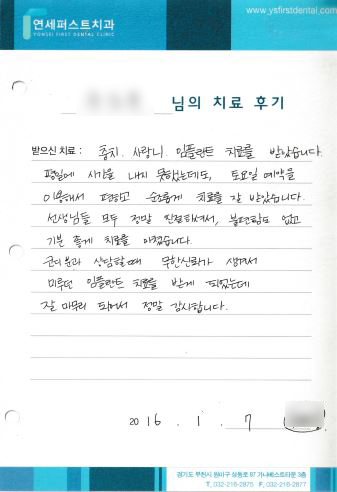 연세퍼스트치과
YONSEI FIRST DENTAL CLINIC
www.ysfirstdental.com
님의 치료 후기
받으신 치료 : 충치. 사랑니. 임플란트 치료를 받았습니다.
평일에 시간을 내지 못했는데도, 토요일 예약을
이용해서 편하고 순조롭게 치료를 잘 받았습니다.
선생님들 모두 정말 친절하셔서, 불편함도 없고
기분 좋게 치료를 마쳤습니다.
상담할때 무한신뢰가 생겨서
미루던 임플란트 치료를 받게 되었는데
잘 마무리 되어서 정말 감사합니다.
2016 . 1 . 7
경기도 부천시 원미구 상동로 87 가나베스트타운 3층
T. 032-216-2875 F. 032-216-2877